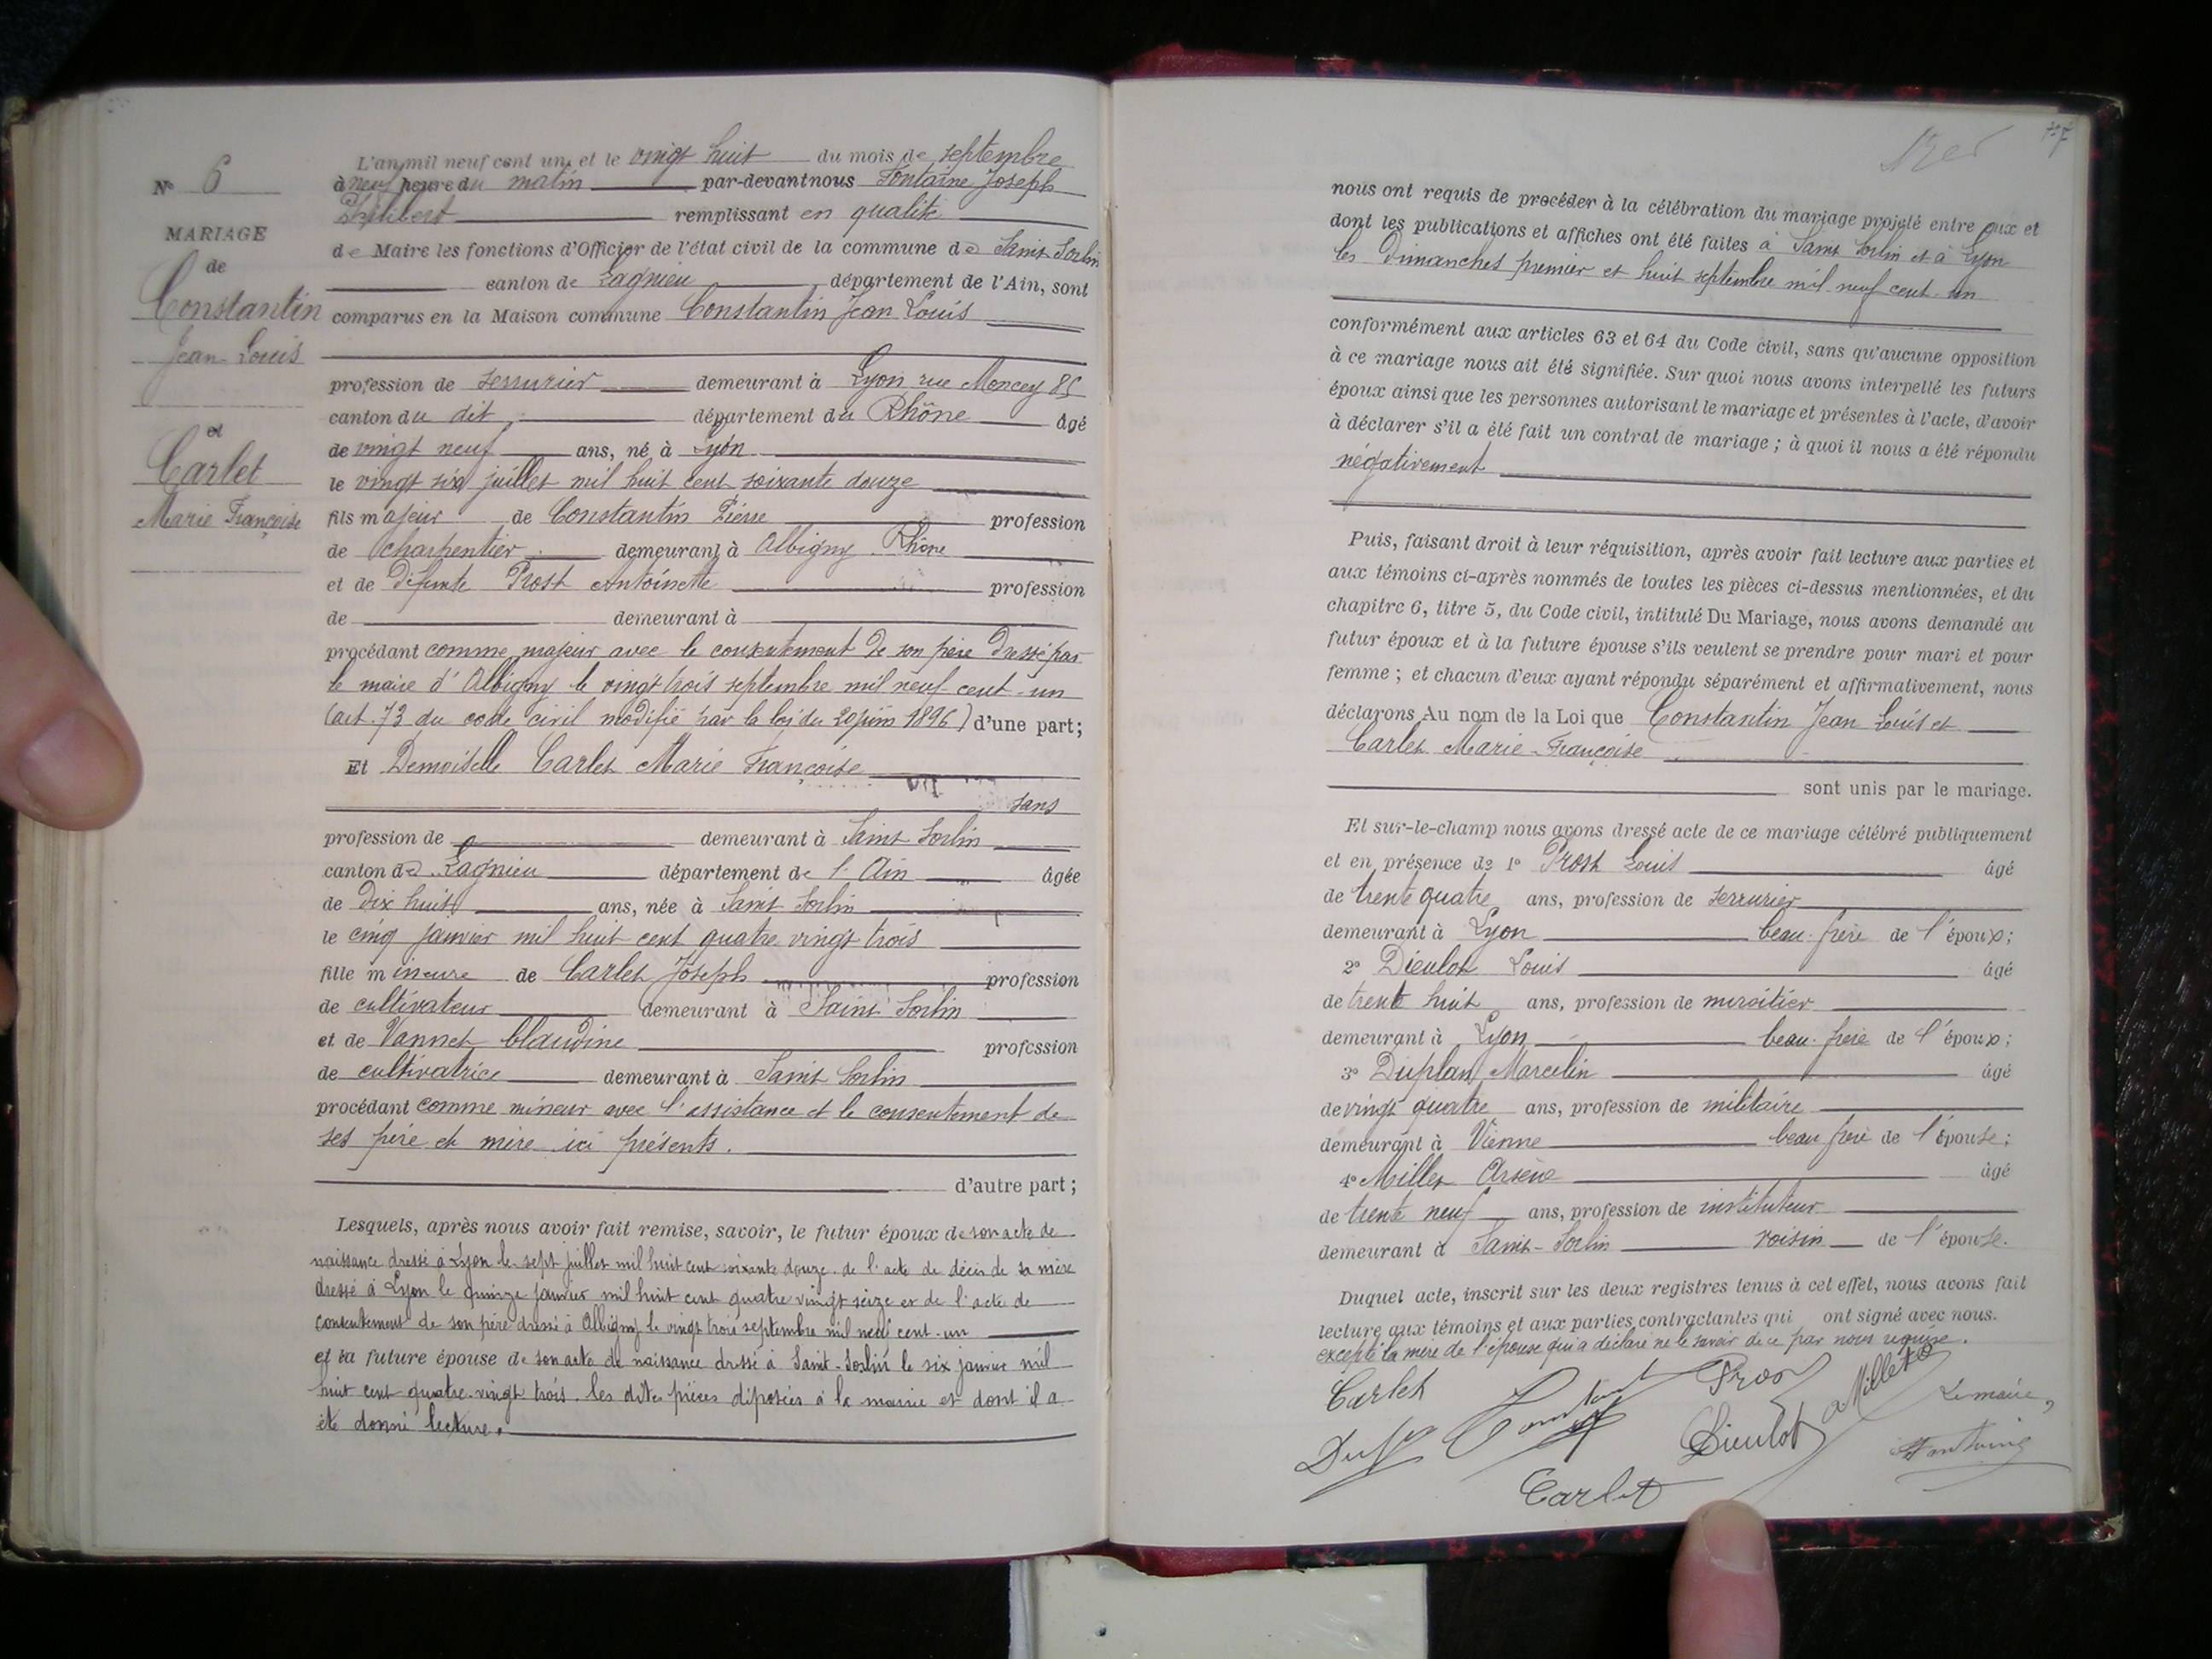 N° 6
MARIAGE
de
Constantin
Jean-Louis
et
Carlet
Marie Françoise
L'an mil neuf cent un, et le vingt huit du mois de septembre
à neuf heure du matin par-devant nous Fontaine Joseph
Philibert remplissant en qualité
de Maire les fonctions d'Officier de l'état civil de la commune de Saint Sorlin
canton de Lagnieu département de l'Ain, sont
comparus en la Maison commune Constantin Jean Louis
profession de serrurier demeurant à Lyon rue Moncey 85
canton du dit département du Rhône âgé
de vingt neuf ans, né à Lyon
le vingt six juillet mil huit cent soixante douze
fils majeur de Constantin Pierre profession
de charpentier demeurant à Albigny Rhône
et de défunte Prost Antoinette profession
de demeurant à
procédant comme majeur avec le consentement de son père dressé par
le maire d'Albigny le vingt trois septembre mil neuf cent-un
(art. 73 du code civil modifié par la loi du 20 juin 1896) d'une part;
Et Demoiselle Carlet Marie Françoise
sans
profession de demeurant à Saint Sorlin
canton de Lagnieu département de l'Ain âgée
de dix huit ans, née à Saint Sorlin
le cinq janvier mil huit cent quatre vingt trois
fille mineure de Carlet Joseph profession
de cultivateur demeurant à Saint Sorlin
et de Vannet Claudine profession
de cultivatrice demeurant à Saint Sorlin
procédant comme mineur avec l'assistance et le consentement de
ses père et mère ici présents.
d'autre part;
Lesquels, après nous avoir fait remise, savoir, le futur époux de son acte de
naissance dressé à Lyon le sept juillet mil huit cent soixante douze. de l'acte de décès de sa mère
dressé à Lyon le quinze janvier mil huit cent quatre vingt seize et de l'acte de
consentement de son père dressé à Albigny le vingt trois septembre mil neuf cent-un
et la future épouse de son acte de naissance dressé à Saint-Sorlin le six janvier mil
huit cent quatre-vingt trois. les dites pièces déposées à la mairie et dont il a
été donné lecture.
nous ont requis de procéder à la célébration du mariage projeté entre eux et
dont les publications et affiches ont été faites à Saint Sorlin et à Lyon
les Dimanches premier et huit septembre mil neuf cent un
conformément aux articles 63 et 64 du Code civil, sans qu'aucune opposition
à ce mariage nous ait été signifiée. Sur quoi nous avons interpellé les futurs
époux ainsi que les personnes autorisant le mariage et présentes à l'acte, d'avoir
à déclarer s'il a été fait un contrat de mariage; à quoi il nous a été répondu
négativement
Puis, faisant droit à leur réquisition, après avoir fait lecture aux parties et
aux témoins ci-après nommés de toutes les pièces ci-dessus mentionnées, et du
chapitre 6, titre 5, du Code civil, intitulé Du Mariage, nous avons demandé au
futur époux et à la future épouse s'ils veulent se prendre pour mari et pour
femme; et chacun d'eux ayant répondu séparément et affirmativement, nous
déclarons Au nom de la Loi que Constantin Jean Louis et
Carlet Marie-Françoise
sont unis par le mariage.
Et sur-le-champ nous avons dressé acte de ce mariage célébré publiquement
et en présence de 1° Prost Louis âgé
de trente quatre ans, profession de serrurier
demeurant à Lyon beau-frère de l'époux;
2° Dieulot Louis âgé
de trente huit ans, profession de miroitier
demeurant à Lyon beau-frère de l'époux;
3° Duplan Marcelin âgé
de vingt quatre ans, profession de militaire
demeurant à Vienne beau frère de l'épouse;
4° Millet Arsène âgé
de trente neuf ans, profession de instituteur
demeurant à Saint-Sorlin voisin de l'épouse.
Duquel acte, inscrit sur les deux registres tenus à cet effet, nous avons fait
lecture aux témoins et aux parties contractantes qui ont signé avec nous.
excepté la mère de l'épouse qui a déclaré ne le savoir de ce par nous requise.
Carlet
A Millet
Le maire,
Dieulot
Carlet